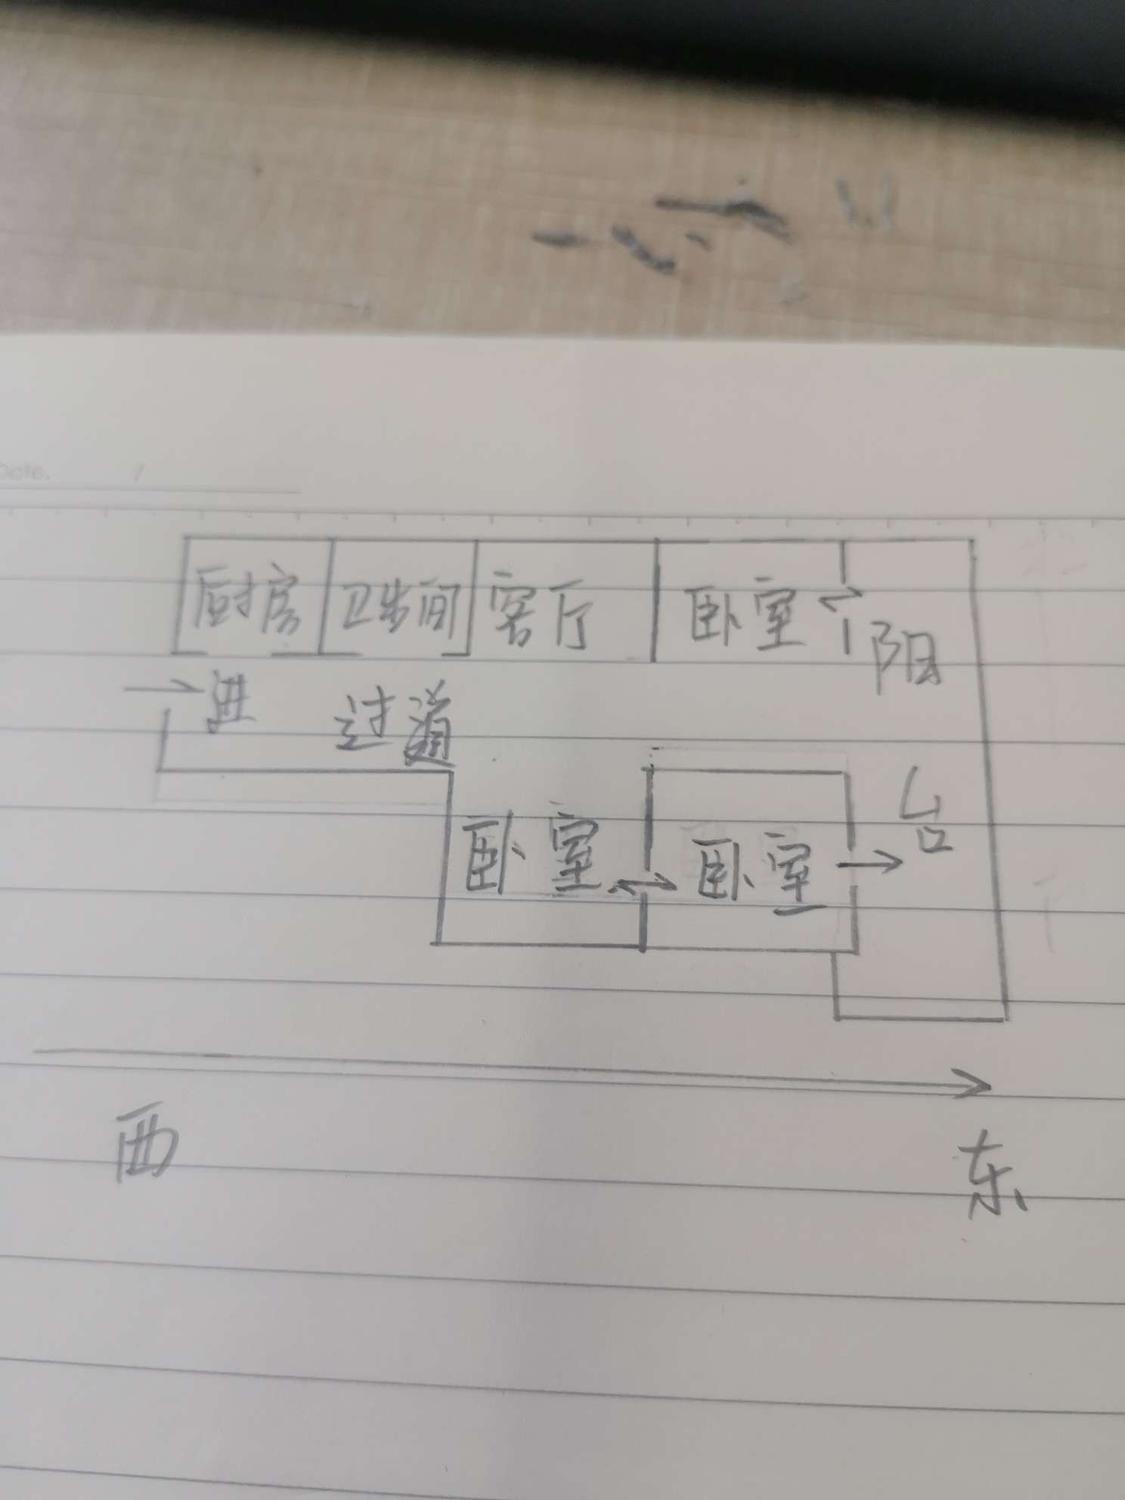 Date. /
厨房 卫生间 客厅 卧室
进 过道 阳
卧室 卧室 台
西 东